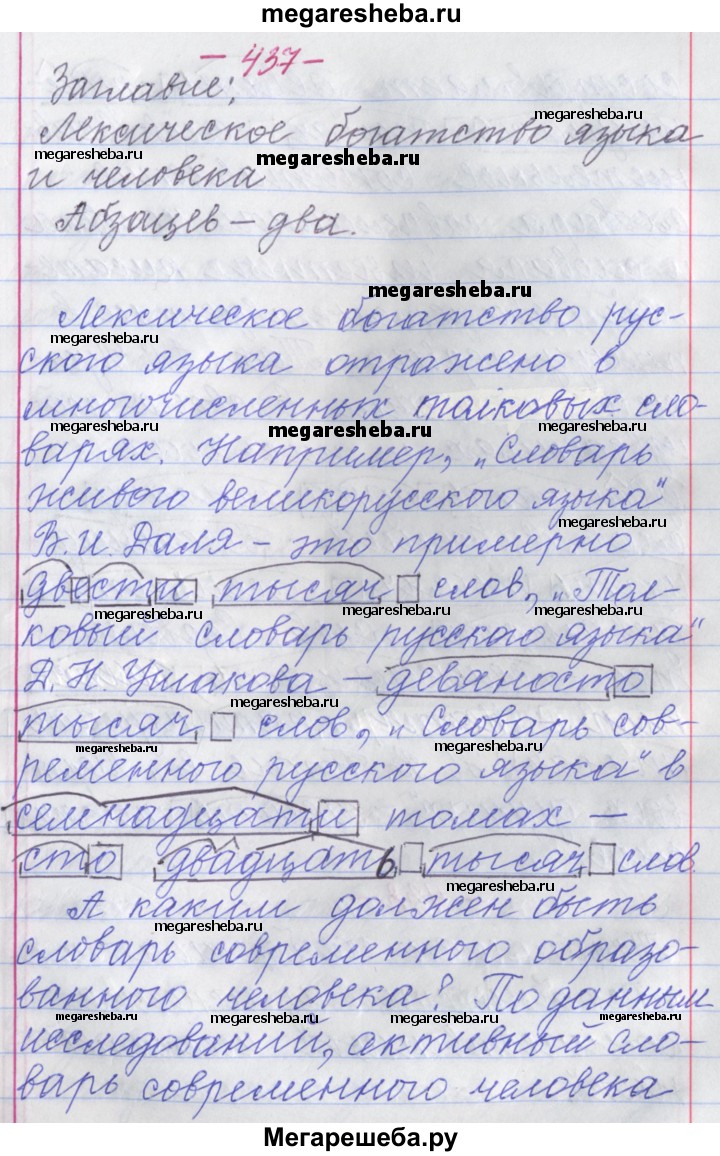 megaresheba.ru
– 437 –
Заглавие:
megaresheba.ru
Лексическое богатство языка
megaresheba.ru
megaresheba.ru
и человека
Абзацев – два.
megaresheba.ru
Лексическое богатство рус-
megaresheba.ru
ского языка отражено в
многочисленных толковых сло-
megaresheba.ru
варях. Например, „Словарь
megaresheba.ru
живого великорусского языка“
megaresheba.ru
В. И. Даля – это примерно
двести тысяч слов, „Тол-
megaresheba.ru
megaresheba.ru
megaresheba.ru
ковый словарь русского языка“
Д. Н. Ушакова – девяносто
megaresheba.ru
тысяч слов, „Словарь сов-
megaresheba.ru
megaresheba.ru
ременного русского языка“ в
семнадцати томах –
сто двадцать тысяч слов.
megaresheba.ru
А каким должен быть
megaresheba.ru
словарь современного образо-
ванного человека? По данным
megaresheba.ru
megaresheba.ru
megaresheba.ru
megaresheba.ru
исследований, активный сло-
варь современного человека
megaresheba.ru
Мегарешеба.ру